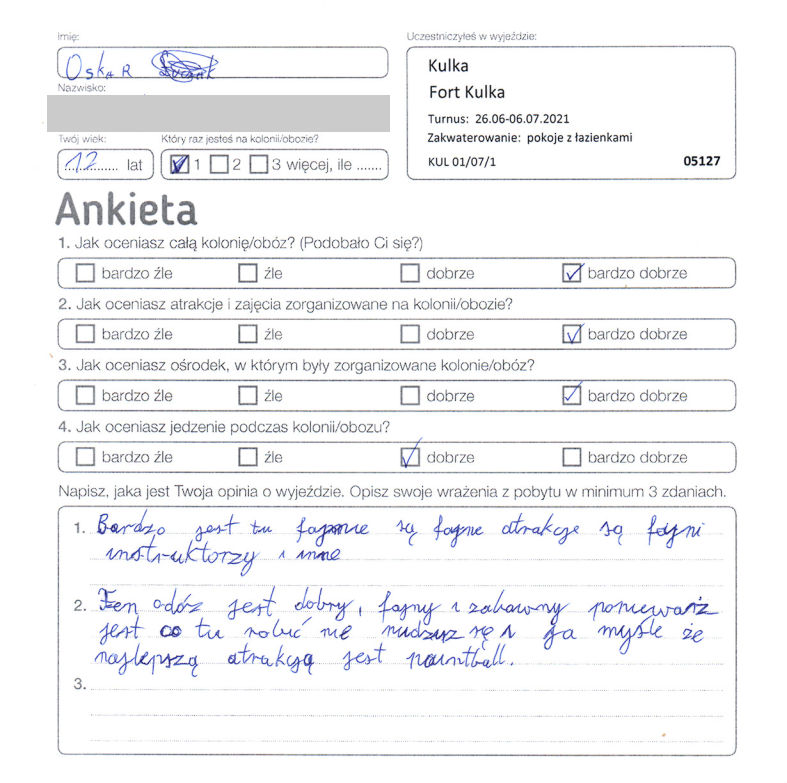 Imię:
Uczestniczyłeś w wyjeździe:
Oskar
Kulka
Fort Kulka
Nazwisko:
Turnus: 26.06-06.07.2021
Zakwaterowanie: pokoje z łazienkami
KUL 01/07/1 05127
Twój wiek: Który raz jesteś na kolonii/obozie?
12 lat 1 2 3 więcej, ile .......
Ankieta
1. Jak oceniasz całą kolonię/obóz? (Podobało Ci się?)
bardzo źle źle dobrze bardzo dobrze
2. Jak oceniasz atrakcje i zajęcia zorganizowane na kolonii/obozie?
bardzo źle źle dobrze bardzo dobrze
3. Jak oceniasz ośrodek, w którym były zorganizowane kolonie/obóz?
bardzo źle źle dobrze bardzo dobrze
4. Jak oceniasz jedzenie podczas kolonii/obozu?
bardzo źle źle dobrze bardzo dobrze
Napisz, jaka jest Twoja opinia o wyjeździe. Opisz swoje wrażenia z pobytu w minimum 3 zdaniach.
1. Bardzo jest tu fajnie są fajne atrakcje są fajni
instruktorzy i inne
2. Ten odóz jest dobry, fajny i zabawny poniewarz
jest co tu robić nie nudzisz się i Ja mysle że
najlepszą atrakcją jest paintball.
3.